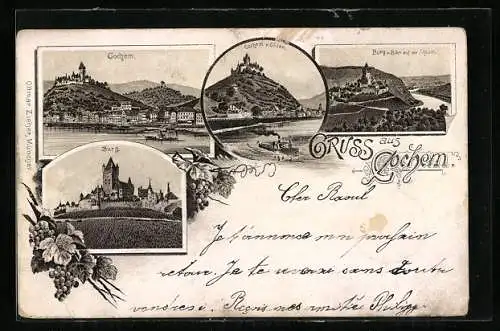 Cochem.
Cochem v. Süden.
Burg
Burg.
Ottmar Zieher, München
GRUSS aus
Cochem.
Cher Raoul
Je t'annonce mon prochain
retour. Je te verrai sans doute
vendredi. Reçois mes amitiés Philipp